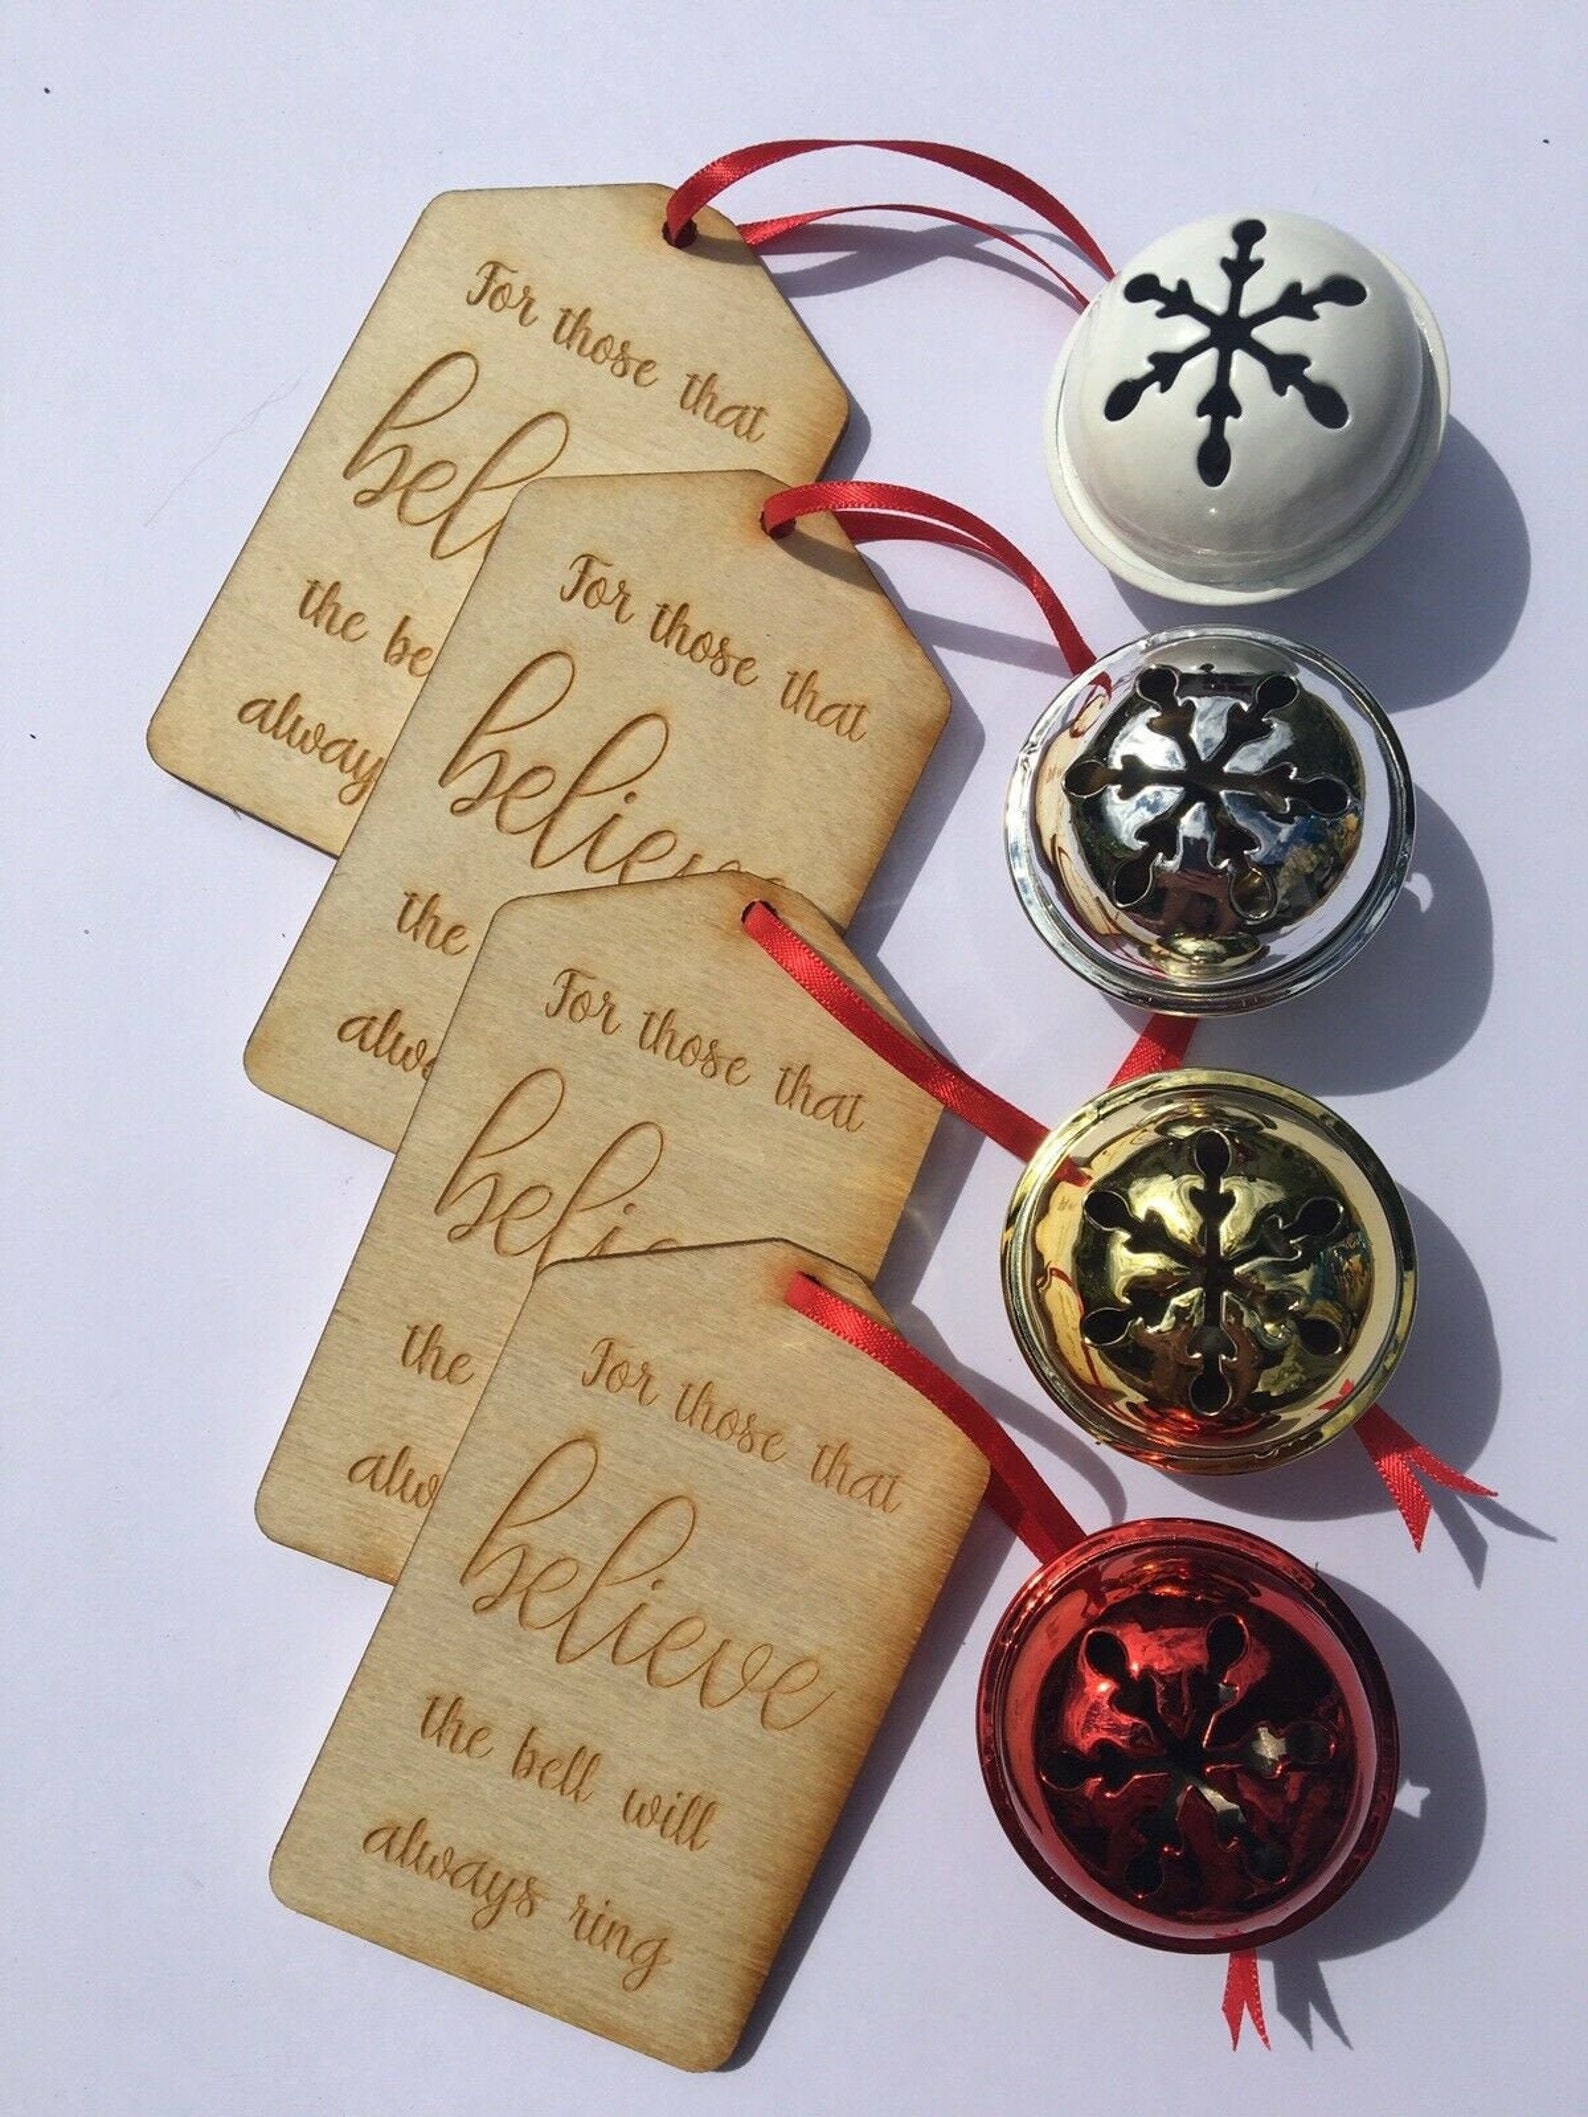 For those that
the
always
For those that
believe
the
For those that
the
For those that
believe
the bell will
always ring